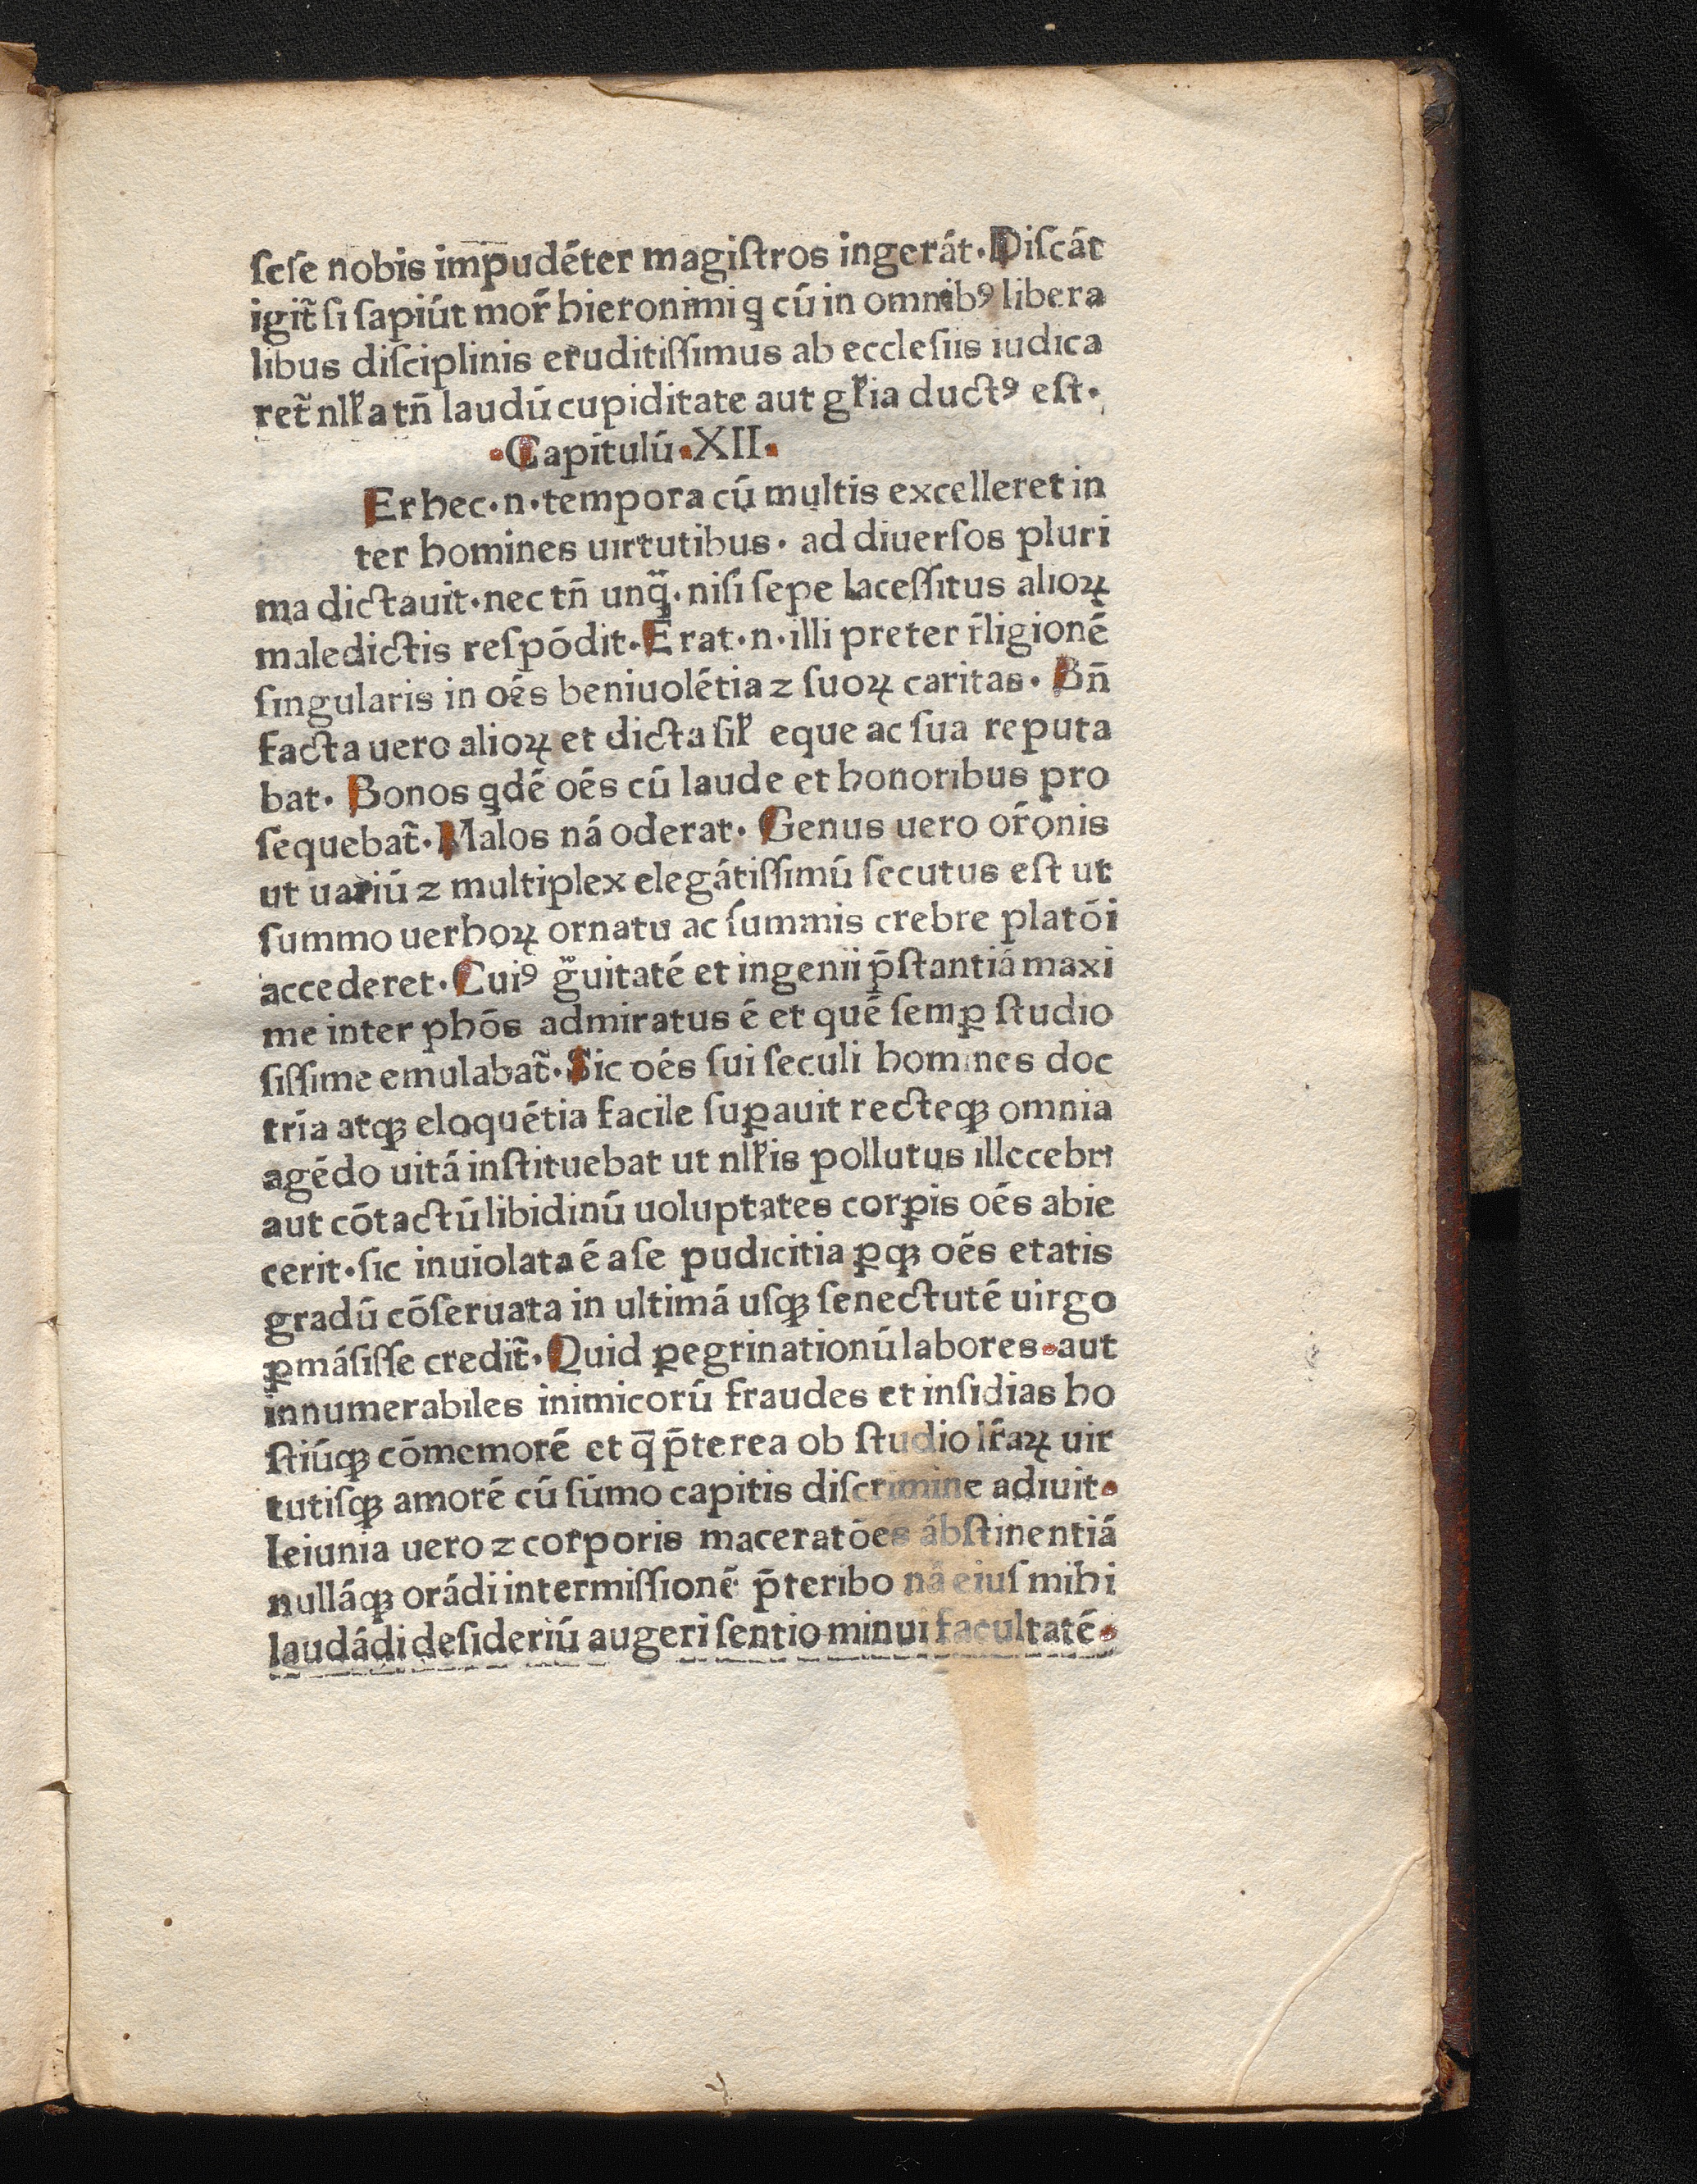 ſeſe nobis impudéter magiſtros ingerát·Diſcát
igit̃ ſi ſapiút mor̃ hieronimi q̨ cú in omnibꝰ libera
libus diſciplinis eruditiſſimus ab ecclesiis iudica
ret̃ nłła tn̄ laudú cupiditate aut głia ductꝰ eſt·
·Capitulú·XII·
Erhec·n·tempora cū multis excelleret in
ter homines uirtutibus· ad diuerſos pluri
ma dictauit·nec tn̄ unq̃·niſi ſepe laceſſitus alioꝝ
maledictis reſpōdit·Erat·n·illi preter r̃ligionē
ſingularis in oés beniuolétia ⁊ ſuoꝝ caritas· Bn̄
facta uero alioꝝ et dicta ſił eque ac ſua reputa
bat· Bonos q̨dē oés cū laude et honoribus pro
ſequebat̃·Malos ná oderat· Genus uero or̃onis
ut uariú ⁊ multiplex elegátiſſimū ſecutus eſt ut
ſummo uerboꝝ ornatu ac ſummis crebre platōi
accederet·Cuiꝰ g̃uitaté et ingenii p̄ſtantiá maxi
me inter phōs admiratus é et qué ſemꝑ ſtudio
ſiſſime emulabat̃·Sic oés ſui ſeculi homines doc
tría atqꝫ eloquétia facile ſuꝑauit recteqꝫ omnia
agédo uitá inſtituebat ut nłłis pollutus illecebri
aut cōtactū libidinū uoluptates corꝑis oés abie
cerit·ſic inuiolata é a ſe pudicitia ꝑqꝫ oés etatis
gradū cōſeruata in ultimá uſqꝫ ſenectuté uirgo
ꝑmáſiſſe credit̃·Quid ꝑegrinationū labores·aut
innumerabiles inimicorū fraudes et inſidias ho
ſtiúqꝫ cōmemoré et q̄ p̄terea ob ſtudio lr̃aꝝ uir
tutiſqꝫ amoré cū ſúmo capitis diſcrimine adiuit·
Ieiunia uero ⁊ corporis maceratōes ábſtinentiá
nulláqꝫ orádi intermiſſionē p̄teribo ná eiuſ mihi
laudádi deſideriú augeri ſentio minui facultaté·